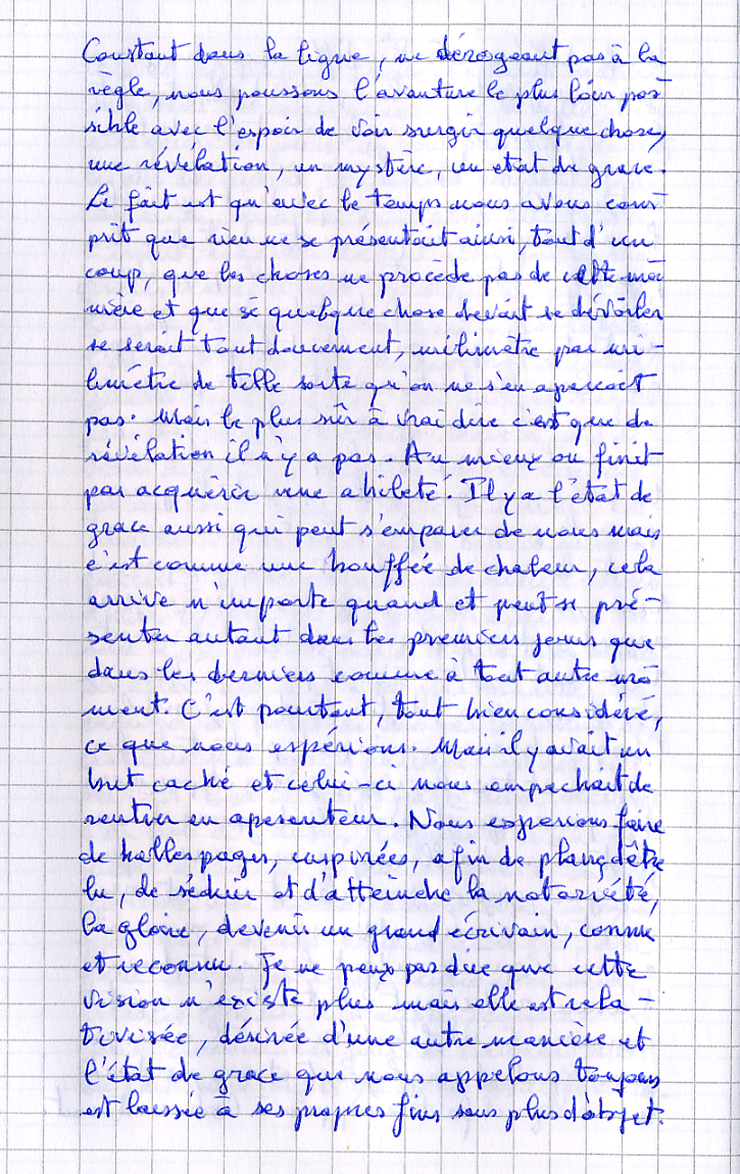 Constant dans la ligne, ne dérogeant pas à la
règle, nous poussons l'avanture le plus loin pos-
sible avec l'espoir de voir surgir quelque chose,
une révélation, un mystère, un etat de grace.
Le fait est qu'avec le temps nous avons com-
prit que rien ne se présentait ainsi, tout d'un
coup, que les choses ne procède pas de cette ma-
nière et que si quelque chose devait se dévoiler
se serait tout doucement, milimètre par mi-
limètre de telle sorte qu'on ne s'en apercoit
pas. Mais le plus sûr à vrai dire c'est que de
révélation il n'y a pas. Au mieux on finit
par acquérir une abileté. Il y a l'état de
grace aussi qui peut s'emparer de nous mais
c'est comme une bouffée de chaleur, cela
arrive n'importe quand et peut se pré-
senter autant dans les premiers jours que
dans les derniers comme à tout autre mo-
ment. C'est pourtant, tout bien considéré,
ce que nous espérions. Mais il y avait un
but caché et celui-ci nous empechait de
rentrer en apesenteur. Nous esperions faire
de belles pages, inspirées, afin de plaire, d'être
lu, de séduir et d'atteindre la notoriété,
la gloire, devenir un grand écrivain, connu
et reconnu. Je ne peux pas dire que cette
vision n'existe plus mais elle est rela-
tivisée, désirée d'une autre manière et
l'état de grace que nous appelons toujours
est laissée à ses propres fins sans plus d'objet.